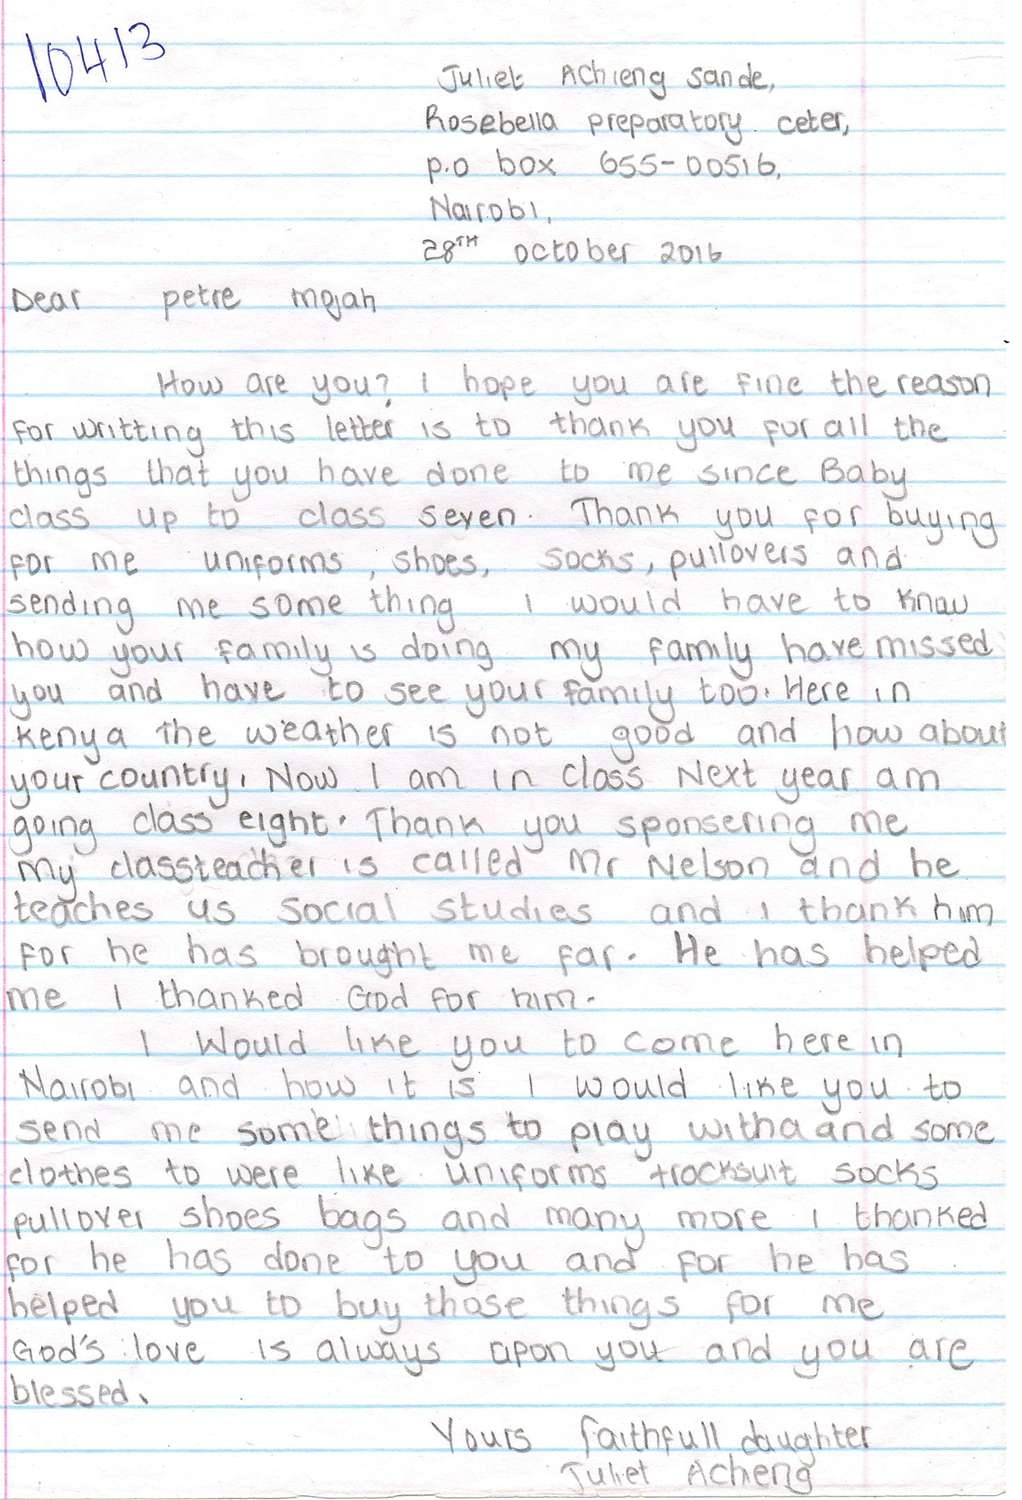 10413
Juliet Achieng Sande,
Rosebella preparatory ceter,
p.o box 655-00516,
Nairobi,
28TH october 2016
Dear petre mojah
How are you? I hope you are fine the reason
for writting this letter is to thank you for all the
things that you have done to me since Baby
class up to class seven. Thank you for buying
for me uniforms, shoes, socks, pullovers and
sending me some thing I would have to know
how your family is doing my family have missed
you and have to see your family too. Here in
Kenya the weather is not good and how about
your country. Now I am in class Next year am
going class eight. Thank you sponsering me
my classteacher is called Mr Nelson and he
teaches us social studies and I thank him
for he has brought me far. He has helped
me I thanked God for him.
I would like you to come here in
Nairobi and how it is I would like you to
send me some things to play witha and some
clothes to were like uniforms tracksuit socks
pullover shoes bags and many more I thanked
for he has done to you and for he has
helped you to buy those things for me
God's love is always upon you and you are
blessed.
Yours faithfull daughter
Juliet Acheng